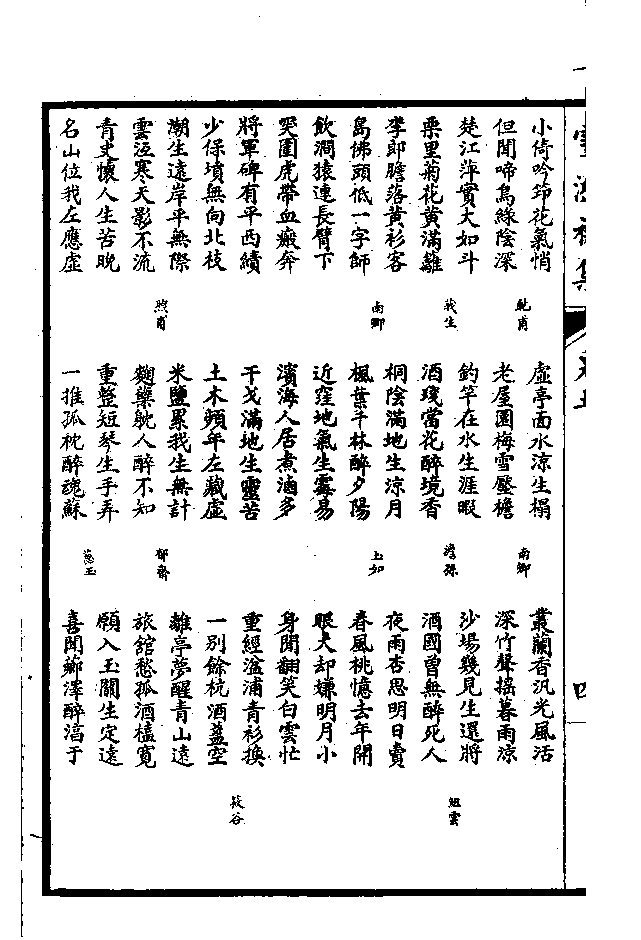 小倚吟筇花氣悄
但聞啼鳥綠陰深
乾甫
楚江萍實大如斗
栗里菊花黃滿籬
我生
李郎膽落黃衫客
島佛頭低一字師
南鄉
飲澗猿連長臂下
突圍虎帶血瘢奔
將軍碑有平西績
少保墳無向北枝
潮生遠岸平無際
雲沍寒天影不流
煦甫
青史懷人生苦晚
名山位我左應虛
虛亭面水涼生榻
老屋圍梅雪壓檐
南鄉
釣竿在水生涯暇
酒琖當花醉境香
澹孫
桐陰滿地生涼月
楓葉千林醉夕陽
玉如
近窪地氣生霉易
濱海人居煮滷多
干戈滿地生靈苦
土木頻年左藏虛
米鹽累我生無計
麴櫱躭人醉不知
郁齋
重整短琴生手弄
一推孤枕醉魂蘇
蔥玉
叢蘭香汎光風活
深竹聲搖暮雨涼
沙場幾見生還將
酒國曾無醉死人
組雲
夜雨杏思明日賣
春風桃憶去年開
眼大却嫌明月小
身閒翻笑白雲忙
重經湓浦青衫換
一別餘杭酒盞空
筱谷
離亭夢醒青山遠
旅館愁孤酒榼寬
願入玉關生定遠
喜聞薌澤醉淳于
四